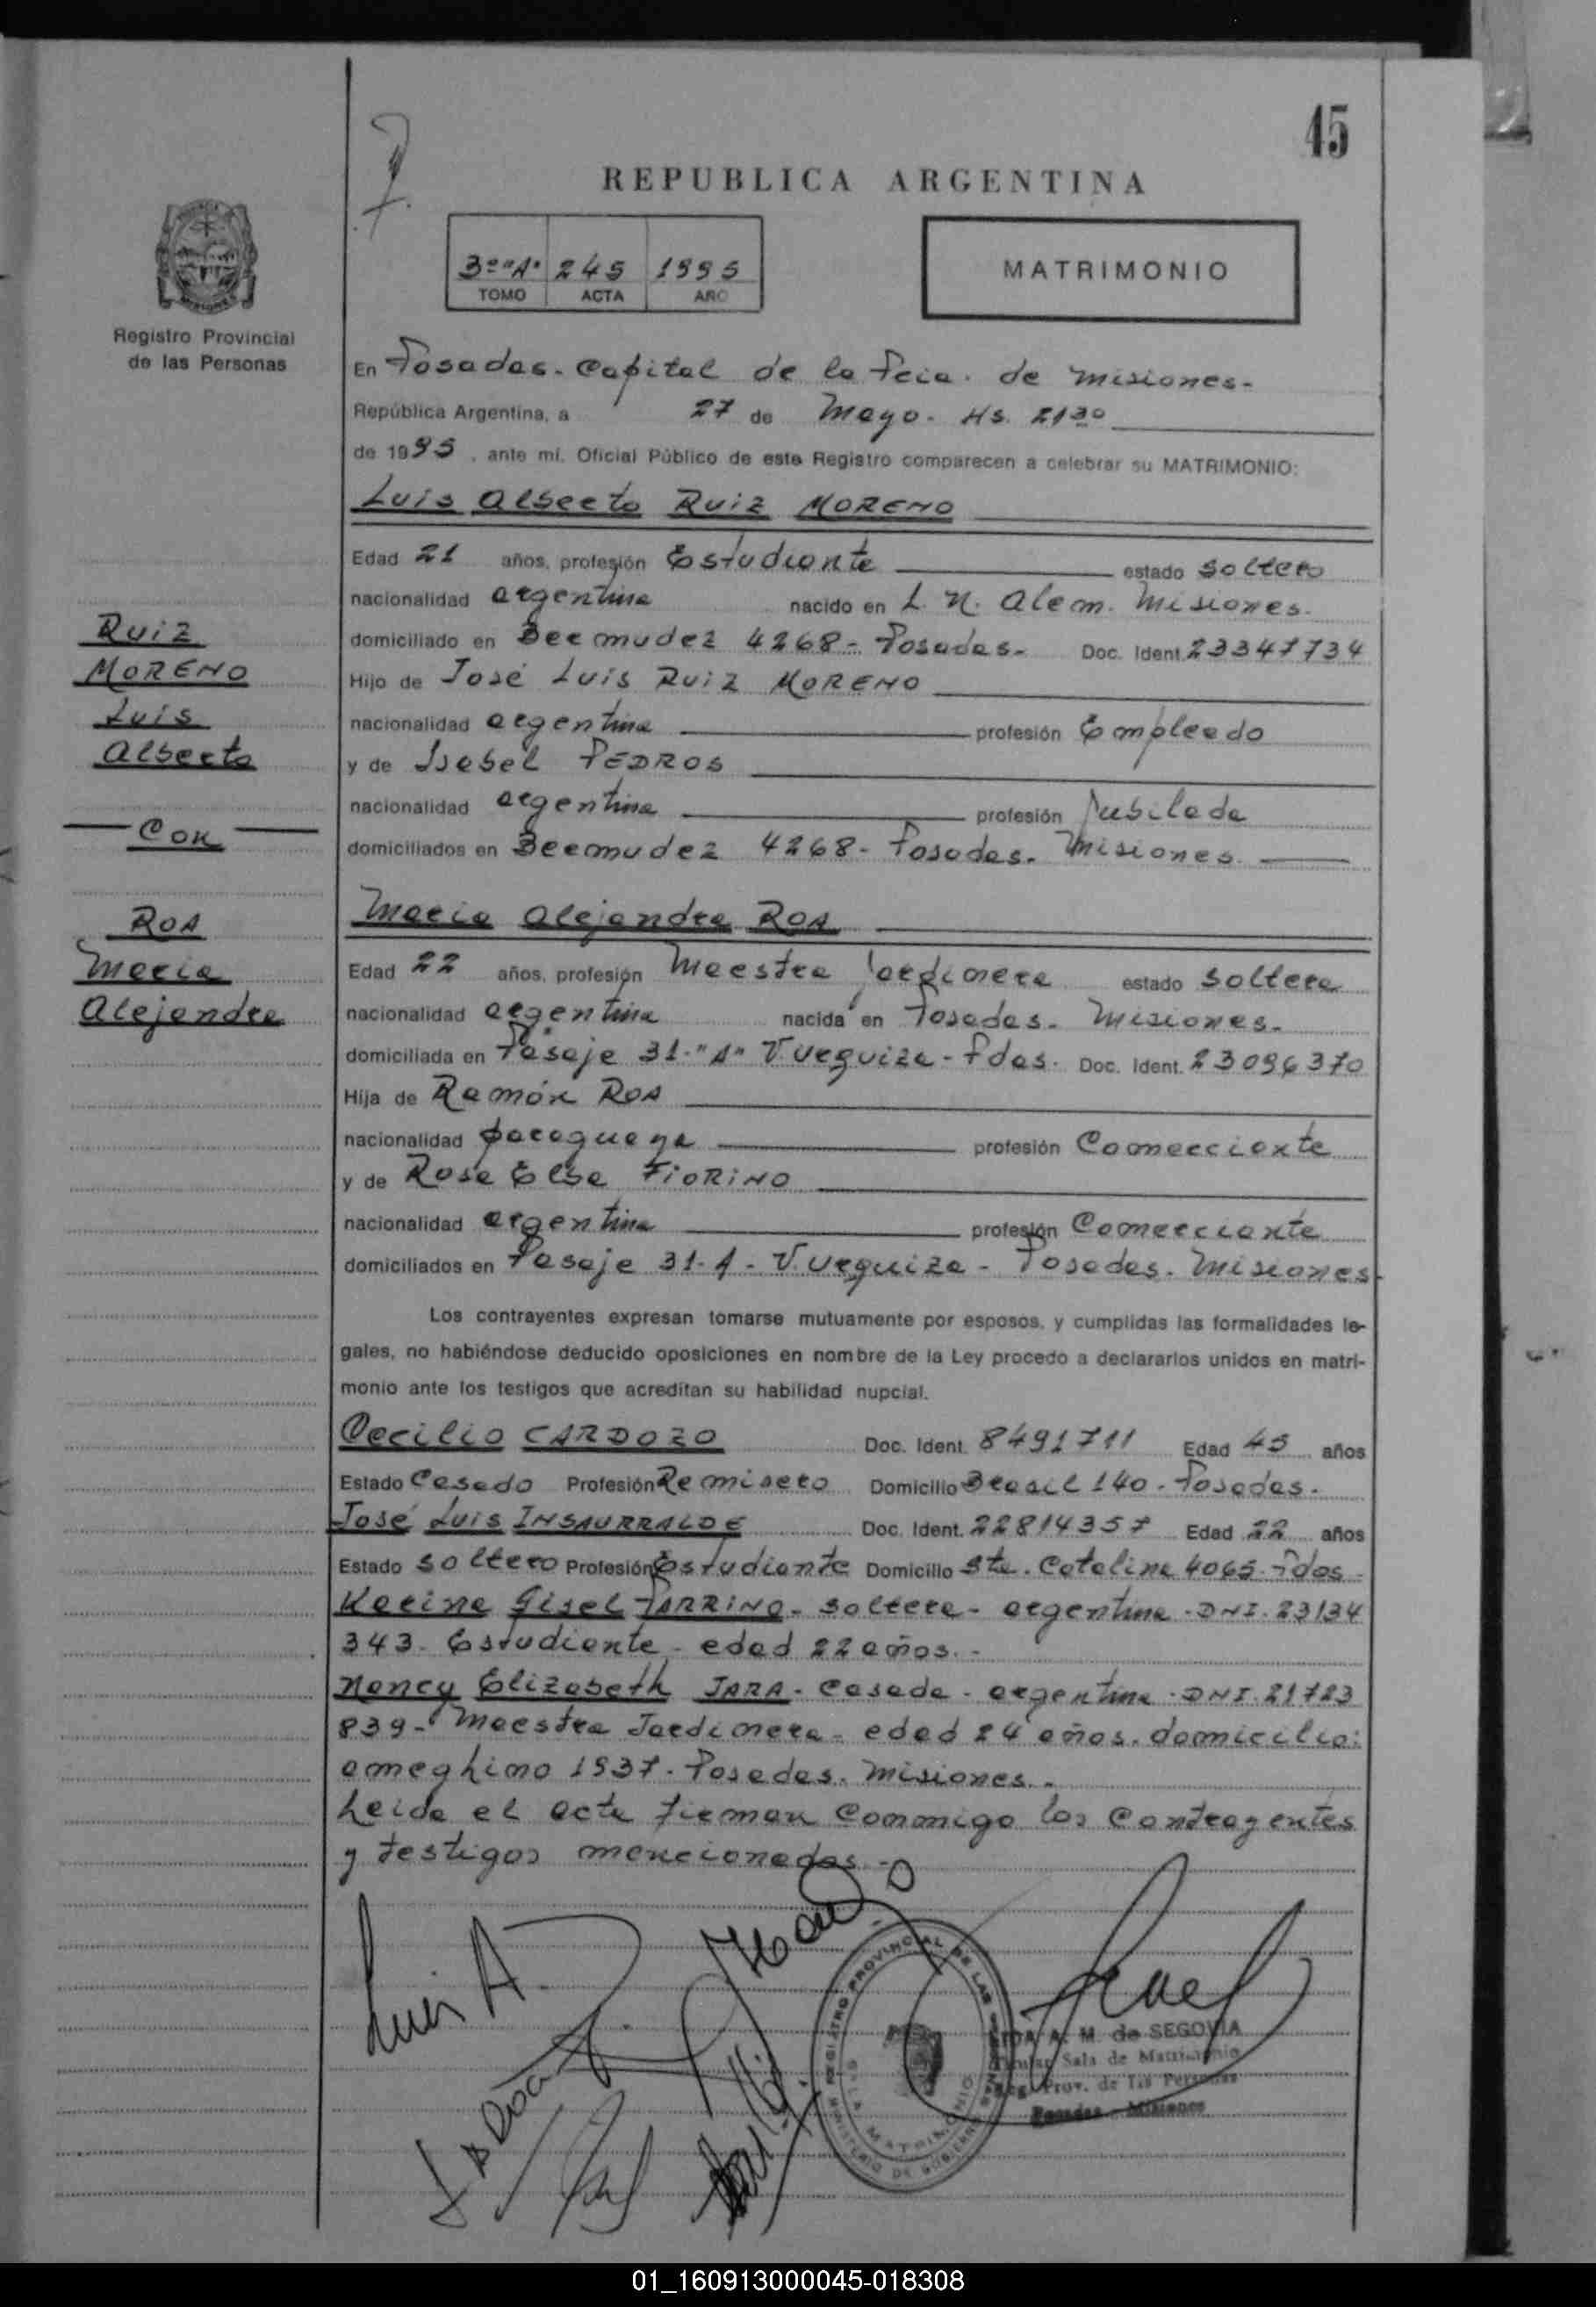 45
REPUBLICA ARGENTINA
3º "A" 245 1995
TOMO ACTA AÑO
MATRIMONIO
Registro Provincial
de las Personas
En Posadas - Capital de la Pcia. de Misiones -
República Argentina, a 27 de Mayo - Hs. 21³⁰
de 1995, ante mí, Oficial Público de este Registro comparecen a celebrar su MATRIMONIO:
Luis Alberto Ruiz MORENO
Edad 21 años, profesión Estudiante estado soltero
nacionalidad argentina nacido en L. N. Alem. Misiones.
domiciliado en Bermudez 4268 - Posadas - Doc. Ident. 23347734
Hijo de José Luis Ruiz MORENO
nacionalidad argentina profesión Empleado
y de Isabel PEDROS
nacionalidad argentina profesión Jubilada
domiciliados en Bermudez 4268 - Posadas - Misiones
Ruiz
MORENO
Luis
Alberto
Con
ROA
Maria
Alejandra
Maria Alejandra ROA
Edad 22 años, profesión Maestra Jardinera estado soltera
nacionalidad argentina nacida en Posadas - Misiones -
domiciliada en Pasaje 31 - "A" V. Urquiza - Pdas. Doc. Ident. 23096370
Hija de Ramón ROA
nacionalidad paraguaya profesión Comerciante
y de Rosa Elsa FIORINO
nacionalidad argentina profesión Comerciante
domiciliados en Pasaje 31 - A - V. Urquiza - Posadas. Misiones
Los contrayentes expresan tomarse mutuamente por esposos, y cumplidas las formalidades le-
gales, no habiéndose deducido oposiciones en nombre de la Ley procedo a declararlos unidos en matri-
monio ante los testigos que acreditan su habilidad nupcial.
Cecilio CARDOZO Doc. Ident. 8491711 Edad 45 años
Estado Casado Profesión Remisero Domicilio Brasil 140 - Posadas.
José Luis INSAURRALDE Doc. Ident. 22814357 Edad 22 años
Estado soltero Profesión Estudiante Domicilio Sta. Catalina 4065 - Pdas -
Karina Gisel TARRINO - soltera - argentina - DNI. 23134
343 - Estudiante - edad 22 años. -
Nancy Elizabeth JARA - Casada - argentina - DNI. 21723
839 - Maestra Jardinera - edad 24 años. domicilio:
ameghino 1937 - Posadas. Misiones -
Leida el acta firman conmigo los contrayentes
y testigos mencionados -
Luis A.
REGISTRO PROVINCIAL DE LAS PERSONAS
SALA MATRIMONIO
MINISTERIO DE GOBIERNO
A. M. de SEGOVIA
Sala de Matrimonio
Reg. Prov. de las Personas
Posadas - Misiones
01_160913000045-018308